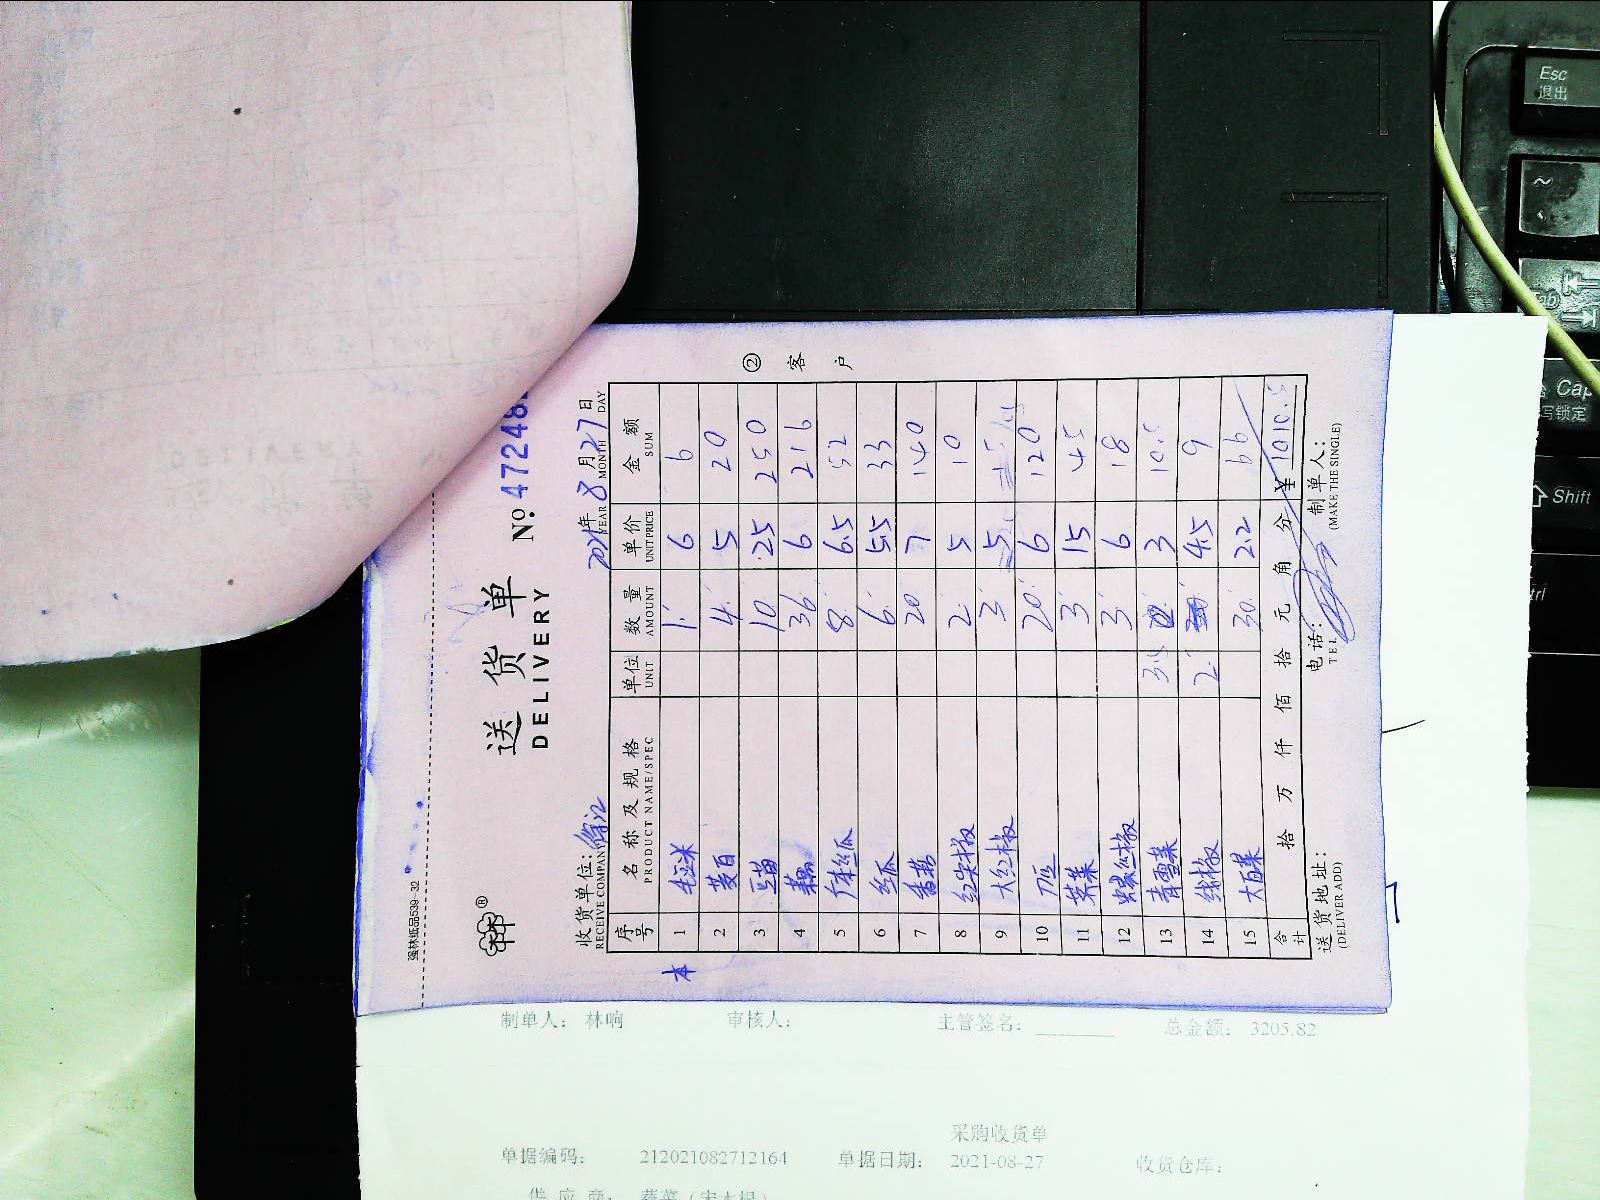 强林纸品539-32
送货单
DELIVERY
No. 472248
收货单位:
RECEIVE COMPANY
2021年 8月27日
YEAR MONTH DAY
② 客户
序号 名称及规格 单位 数量 单价 金额
PRODUCT NAME/SPEC UNIT AMOUNT UNIT PRICE SUM
1 毛豆米 1 6 6
2 茭白 4 5 20
3 豆苗 10 25 250
4 藕 36 6 216
5 本丝瓜 8 6.5 52
6 丝瓜 6 5.5 33
7 番茄 20 7 140
8 红尖椒 2 5 10
9 大红椒 3 5
10 20 6 120
11 芹菜 3 15 45
12 螺丝椒 3 6 18
13 青雪菜 3.5 3 10.5
14 线椒 2 4.5 9
15 大白菜 30 2.2 66
合计 拾 万 仟 佰 拾 元 角 分 ¥1010.5
送货地址: 电话: 制单人:
(DELIVER ADD) TEL (MAKE THE SINGLE)
制单人: 林响 审核人: 主管签名: 总金额: 3205.82
采购收货单
单据编码: 212021082712164 单据日期: 2021-08-27 收货仓库:
供应商:
Esc
退出
~
Tab
Cap
写锁定
Shift
trl